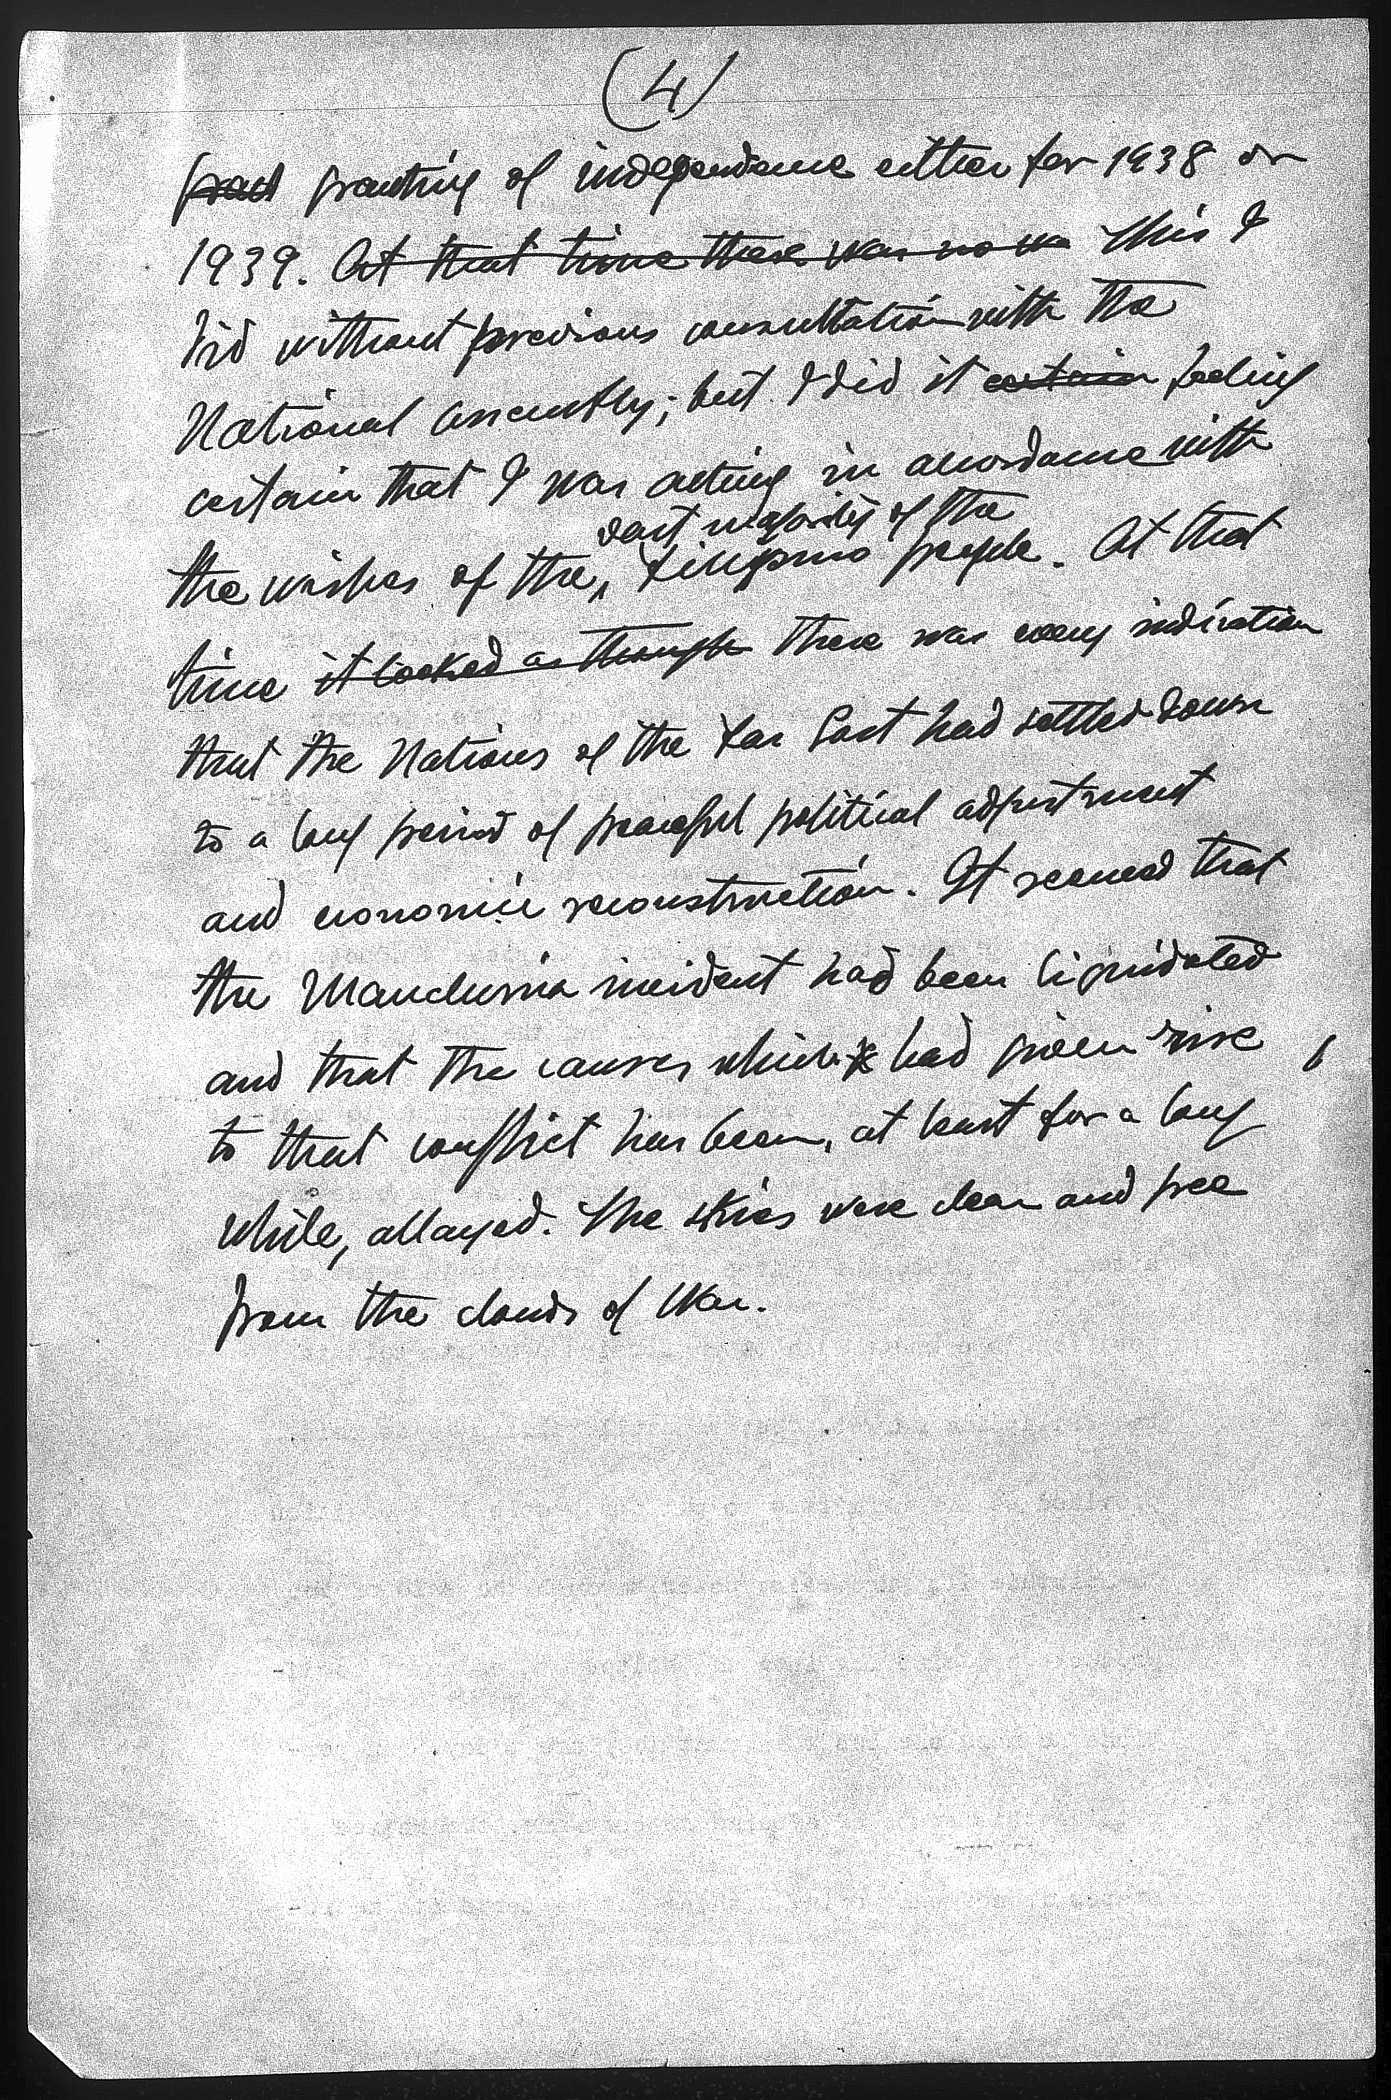 (4)
granting of independence either for 1938 or
1939. At that time there was no wa This I
did without previous consultation with the
National Assembly; but I did it certain feeling
certain that I was acting in accordance with
vast majority of the
the wishes of the Filipino people. At that
time it looked as though there was every indication
that the Nations of the Far East had settled down
to a long period of peaceful political adjustment
and economic reconstruction. It seemed that
the Manchuria incident had been liquidated
and that the causes which had given rise
to that conflict has been, at least for a long
while, allayed. The skies were clear and free
from the clouds of War.